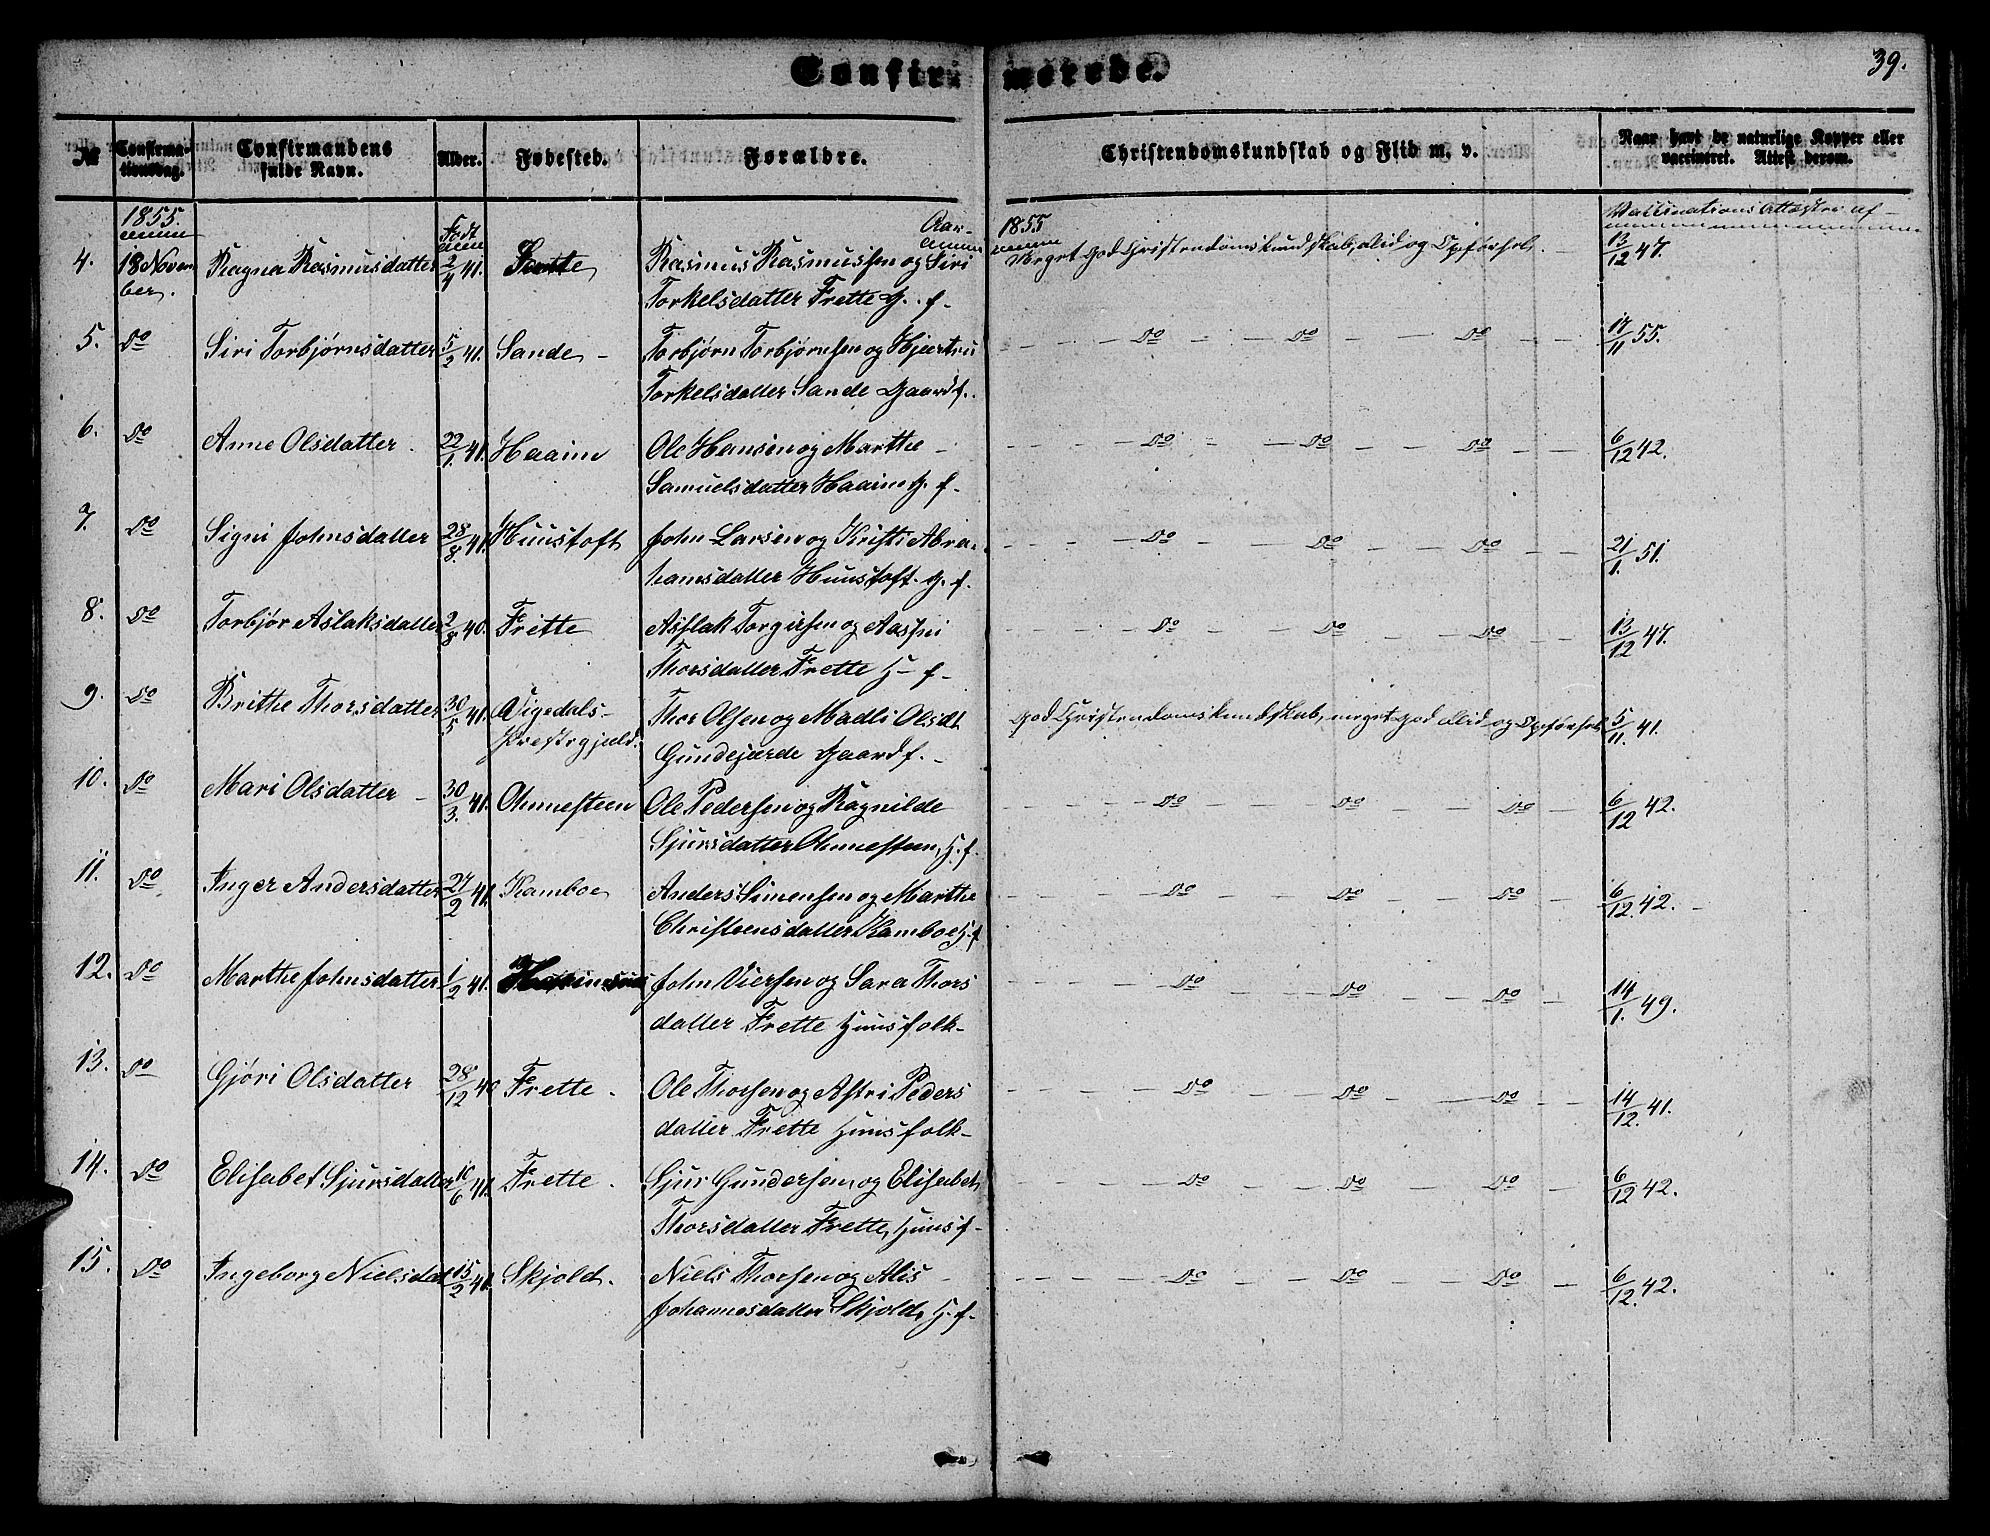 Confirmerede.
39.
No Confirmationsdag. Confirmandens fulde Navn. Alder. Fødested. Forældre. Christendomskundskab og Flid m. v. Naar havt de naturlige Kopper eller vaccineret. Attest derom.
1855. Født Aar 1855 Vaccinations Attester af
4. 18 Novem Ragna Rasmusdatter 2/4 41. Rasmus Rasmussen og Siri Meget god Christendomskundskab, Flid og Opførsel. 13/12 47.
ber. Torkelsdatter Frette G. f.
5. Do Siri Torbjørnsdatter 5/2 41. Sande Torbjørn Torbjørnsen og Hjertru Do Do Do 17/11 55.
Torkelsdatter Sande Gaardf.
6. Do Anne Olsdatter 22/1. 41. Haaim Ole Hansen og Marthe Do Do Do 6/12 42.
Samuelsdatter Haaim G. f.
7. Do Signi Johnsdatter 28/8. 41. Huustoft John Larsen og Kristi Abra- Do Do Do 21/1. 51.
hamsdatter Huustoft. G. f.
8. Do Torbjør Aslaksdatter 2/8 40. Frette Asslak Torgiersen og Aasni Do Do Do 13/12 47.
Thorsdatter Frette H f.
9. Do Brithe Thorsdatter 30/5 41. Vigedals- Thor Olsen og Madli Olsdt God Christendomskundskab, meget god Flid og Opførsel 5/11. 41.
Prestegjeld. Gundejærde Gaardf.
10. Do Mari Olsdatter 30/3. 41. Ommesteen Ole Pedersen og Ragnilde Do Do Do 6/12 42.
Sjursdatter Ommesteen, H. f.
11. Do Inger Andersdatter 27/2 41. Kamboe Anders Simensen og Marthe Do Do Do 6/12. 42.
Christensdatter Kamboe H. f
12. Do Marthe Johnsdatter 1/2 41. John Viersen og Sara Thors Do Do Do 14/1. 49.
datter Frette Huusfolk
13. Do Gjøri Olsdatter 28/12 40 Frette. Ole Thorsen og Astri Peders Do Do Do 14/12. 41.
datter Frette Huusfolk
14. Do Elisabet Sjursdatter 10/6 41. Frette. Sjur Gundersen og Elisabet Do Do Do 6/12 42.
Thorsdatter Frette, Huusf
15. Do Ingeborg Nielsdat 15/2 41. Skjold. Niels Thorsen og Alis Do Do Do 6/12. 42.
Johannesdatter Skjold, H. f.